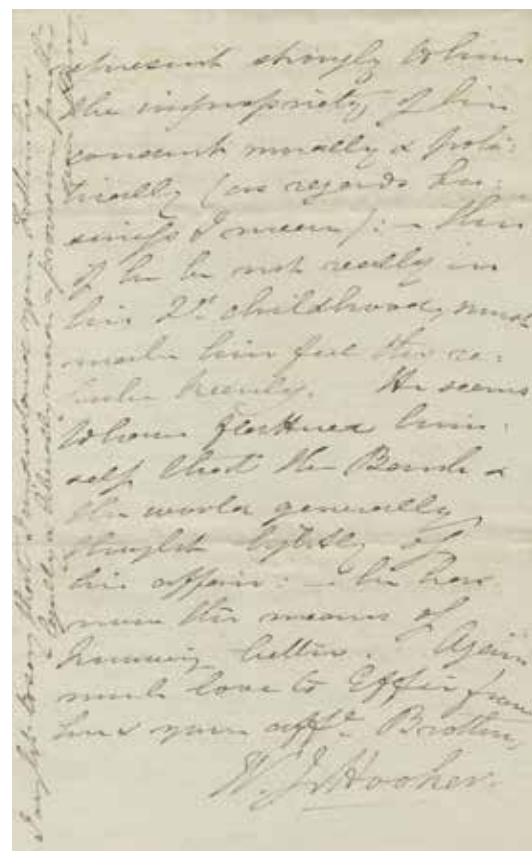 represent strongly to him
the impropriety of his
consent morally & poli-
tically (as regards bu-
siness I mean): - this
if he be not really in
his 2d childhood, must
make him feel the re-
buke keenly. He seems
to have flattered him-
self that the Bench &
the world generally
thought lightly of
his affair: - he has
now the means of
knowing better. Again
much love to Effie from
her & your affte Brother,
W. J. Hooker.
I ought to say that I understand your